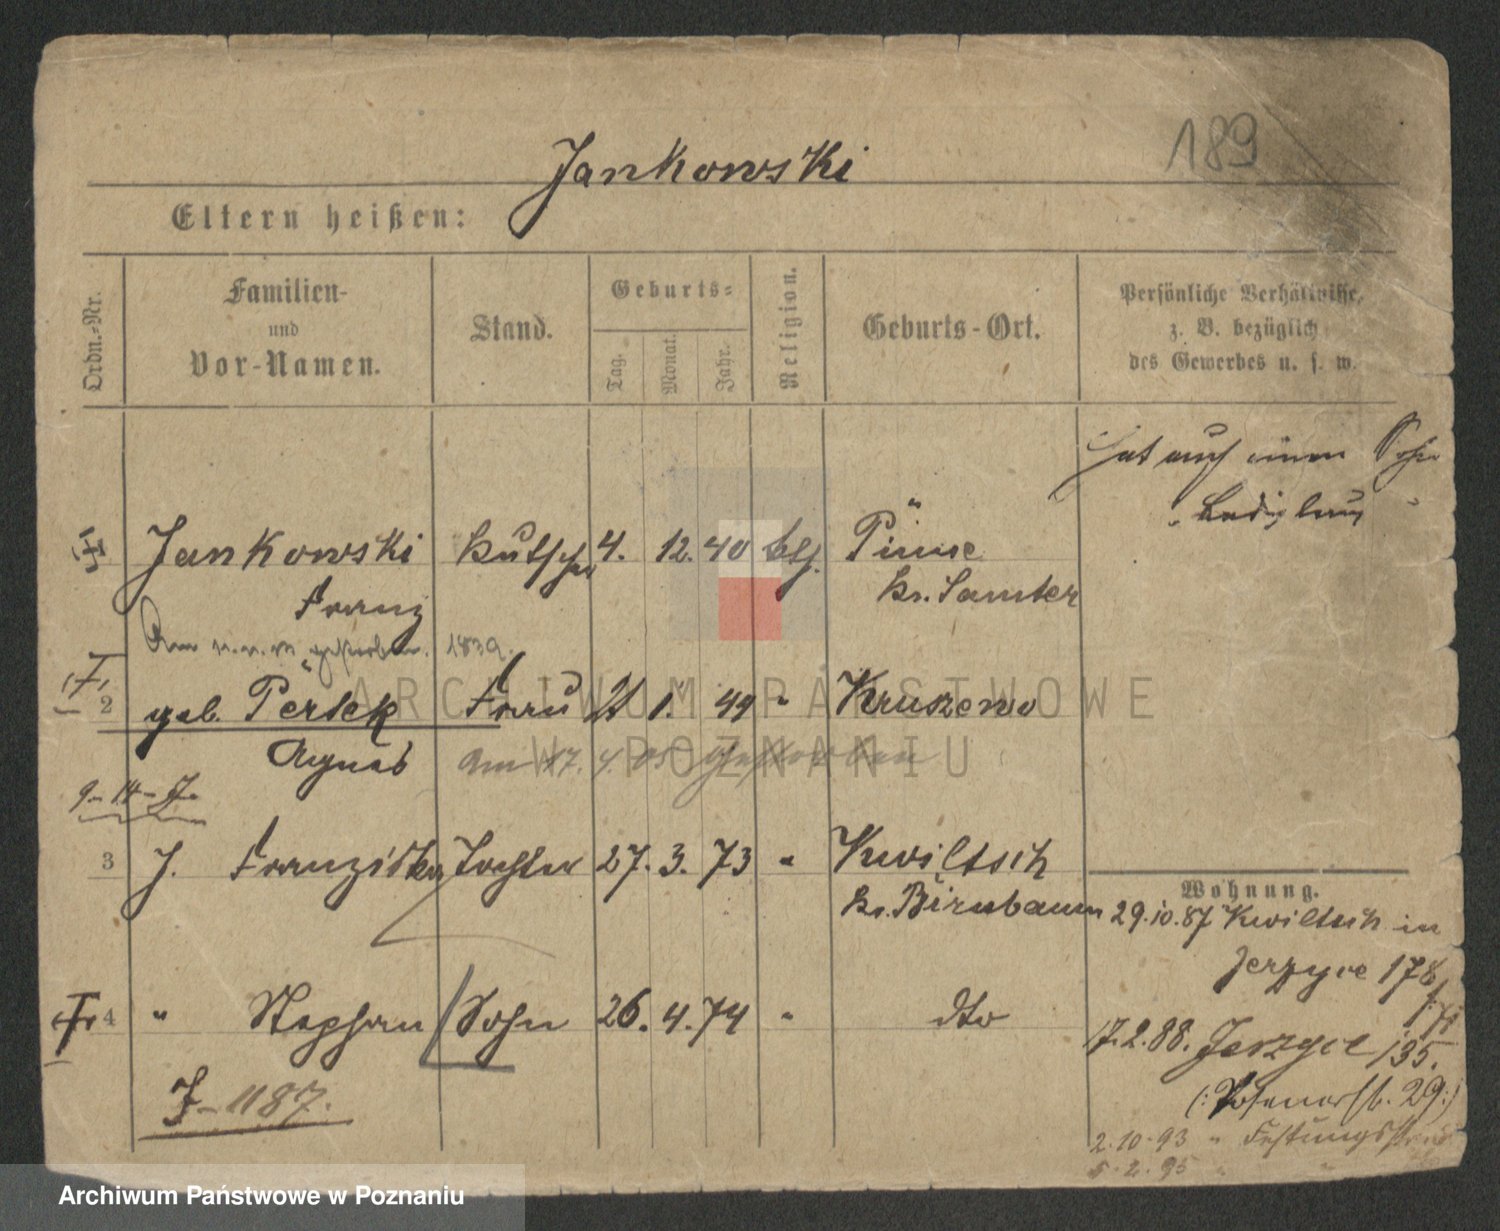 189
Jankowski
Eltern heißen:
Ordn.-Nr.
Familien-
und
Vor-Namen.
Stand.
Geburts-
Tag.
Monat.
Jahr.
Religion.
Geburts-Ort.
Persönliche Verhältnisse,
z. B. bezüglich
des Gewerbes u. s. w.
Hat auch einen Sohn
Ladislaus
Jankowski Kutscher 4. 12. 40 klh. Pinne
Franz Kr. Samter
gestorben.
2 geb. Pertek Frau 21 1. 49 " Kruszewo
Agnes am 17. 4. 05 gestorben
9-14-J.
3 J. Franziska Tochter 27. 3. 73 " Kwiltsch
Kr. Birnbaum
Wohnung.
29.10.87 Kwiltsch in
Jerzyce 178
4 " Stephan Sohn 26. 4. 74 " dto
17.2.88. Jerzyce 135.
J-1187.
(: Posenerstr. 29 :)
2.10.93 "
5.2.95
ARCHIWUM PAŃSTWOWE
W POZNANIU
Archiwum Państwowe w Poznaniu